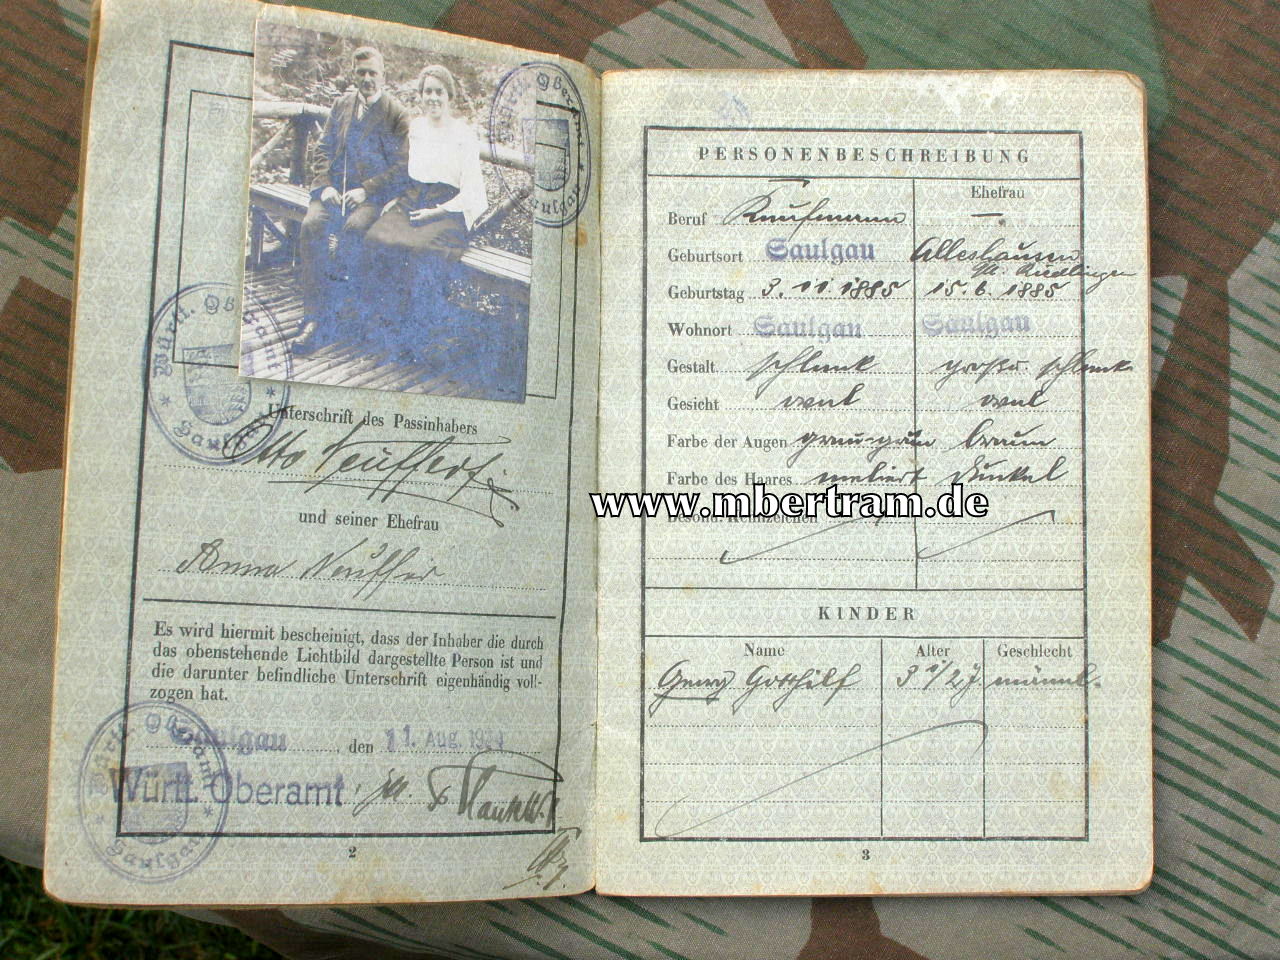 Württ. Oberamt * Saulgau *
Württ. Oberamt * Saulgau *
Unterschrift des Passinhabers
Otto Neuffer
und seiner Ehefrau
Anna Neuffer
Es wird hiermit bescheinigt, dass der Inhaber die durch
das obenstehende Lichtbild dargestellte Person ist und
die darunter befindliche Unterschrift eigenhändig voll-
zogen hat.
Saulgau, den 11. Aug. 1934
Württ. Oberamt
Württ. Oberamt * Saulgau *
2
PERSONENBESCHREIBUNG
Ehefrau
Beruf Kaufmann —
Geburtsort Saulgau Alleshausen
Riedlingen
Geburtstag 3. 11. 1885 15. 6. 1885
Wohnort Saulgau Saulgau
Gestalt schlank groß u. schlank
Gesicht oval oval
Farbe der Augen grau-grün braun
Farbe des Haares meliert dunkel
www.mbertram.de
Besond. Kennzeichen
KINDER
Name Alter Geschlecht
Georg Gotthilf männl.
3